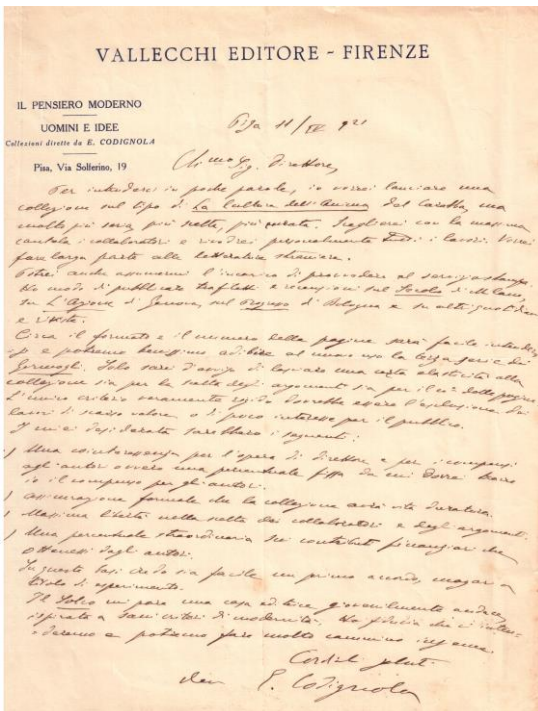 VALLECCHI EDITORE - FIRENZE
IL PENSIERO MODERNO
UOMINI E IDEE
Collezioni dirette da E. CODIGNOLA
Pisa, Via Solferino, 19
Pisa 11/IV 921
Ch.mo Sig. Direttore,
Per intenderci in poche parole, io vorrei lanciare una
collezione sul tipo di La Cultura dell'Anima del Carabba, ma
molto più seria, più scelta, più curata. Sceglierei con la massima
cautela i collaboratori e rivedrei personalmente tutti i lavori. Vorrei
fare larga parte alle letterature straniere.
Potrei anche assumermi l'incarico di provvedere al servizio stampa.
Ho modo di pubblicare trafiletti e recensioni sul Secolo di Milano,
su L'Azione di Genova, sul Progresso di Bologna e su altri quotidiani
e riviste.
Circa il formato e il numero delle pagine sarà facile intenderci
e potremo benissimo adibire al nuovo uso la terza serie dei
Solo sarei d'avviso di lasciare una certa elasticità alla
collezione sia per la scelta degli argomenti sia per il n° delle pagine.
L'unico criterio veramente rigido dovrebbe essere l'esclusione dei
lavori di scarso valore o di poco interesse per il pubblico.
I miei desiderata sarebbero i seguenti:
) Una cointeressenza per l'opera di direttore e per i compensi
agli autori ovvero una percentuale fissa da cui dovrei trarre
io il compenso per gli autori.
) Assicurazione formale che la collezione avrà vita duratura.
) Massima libertà nella scelta dei collaboratori e degli argomenti.
) Una percentuale straordinaria sui contributi finanziari che
ottenessi dagli autori.
Su queste basi credo sia facile un primo accordo, magari a
titolo di esperimento.
Il Solco mi pare una casa editrice giovanilmente audace,
ispirata a sani criteri di modernità. Ho fiducia che ci
e potremo fare molto cammino insieme.
Cordiali saluti
E. Codignola